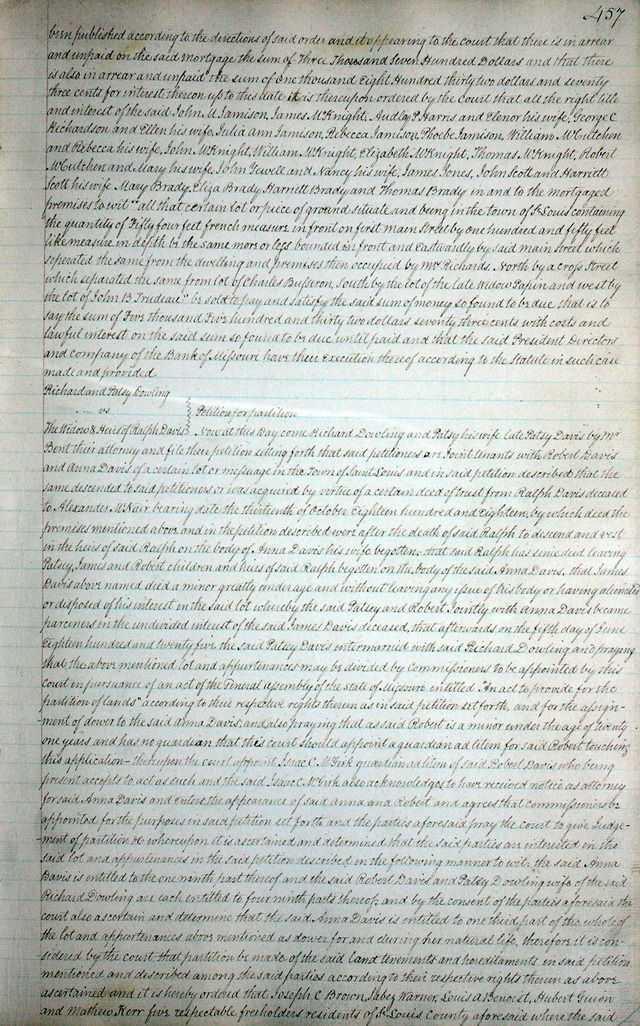 457
been published according to the directions of said order and it appearing to the court that there is in arrear
and unpaid on the said mortgage the sum of Three Thousand Seven Hundred Dollars and that there
is also in arrear and unpaid the sum of one thousand Eight Hundred thirty two dollars and seventy
three cents for interest thereon up to this date it is thereupon ordered by the Court that all the right title
and interest of the said John M Jamison, James McKnight, Audley P. Harris and Elenor his wife, George C
Richardson and Ellen his wife, Julia Ann Jamison, Rebecca Jamison, Phoebe Jamison, William McCutchen
and Rebecca his wife, John McKnight, William McKnight, Elizabeth McKnight, Thomas McKnight, Robert
McCutchen and Mary his wife, John Fewell and Nancy his wife, James Jones, John Scott and Harriett
Scott his wife Mary Brady, Eliza Brady Harriett Brady and Thomas Brady in and to the mortgaged
premises to wit "all that certain lot or piece of ground situate and being in the town of St Louis containing
the quantity of Fifty four feet french measure in front on first main street by one hundred and fifty feet
like measure in depth be the same more or less bounded in front and Eastwardly by said main street which
seperated the same from the dwelling and premises then occupied by Mr Richards, North by a Cross Street
which separated the same from lot of Charles Busseron, South by the lot of the late Widow Papin and west by
the lot of John B Trudeau" be sold to pay and satisfy the said sum of money so found to be due, that is to
say the sum of Five thousand Five hundred and thirty two dollars seventy three cents with costs and
lawful interest on the said sum so found to be due until paid and that the said President Directors
and company of the Bank of Missouri have their Execution thereof according to the Statute in such case
made and provided.
Richard and Patsy Dowling
vs
Petition for partition
The Widow & Heirs of Ralph Davis Now at this Day come Richard Dowling and Patsy his wife late Patsy Davis by Mr
Bent their attorney and file their petition setting forth that said petitioners are Joint tenants with Robert Davis
and Anna Davis of a certain lot or messuage in the Town of Saint Louis and in said petition described that the
same descended to said petitioners or was acquired by virtue of a certain deed of trust from Ralph Davis deceased
to Alexander McNair bearing date the thirteenth of October Eighteen hundred and eighteen, by which deed the
premises mentioned above and in the petition described were after the death of said Ralph to descend and vest
in the heirs of said Ralph on the body of Anna Davis his wife begotten, that said Ralph has since died leaving
Patsey, James and Robert children and heirs of said Ralph begotten on the body of the said Anna Davis, that James
Davis above named died a minor greatly under age and without leaving any issue of his body or having alienated
or disposed of his interest in the said lot whereby the said Patsey and Robert Jointly with Anna Davis became
parceners in the undivided interest of the said James Davis deceased, that afterwards on the fifth day of June
Eighteen hundred and twenty five the said Patsey Davis intermarried with said Richard Dowling and praying
that the above mentioned lot and appurtenances may be divided by Commissioners to be appointed by this
Court in pursuance of an act of the General Assembly of the state of Missouri entitled "An act to provide for the
partition of lands" according to their respective rights therein as in said petition set forth, and for the assign-
-ment of dower to the said Anna Davis and also praying that as said Robert is a minor under the age of twenty
one years and has no guardian that this court should appoint a guardian ad litem for said Robert touching
this application - thereupon the court appoint Isaac C. McGirk guardian ad litem of said Robert Davis who being
present accepts to act as such and the said Isaac C. McGirk also acknowledges to have received notice as attorney
for said Anna Davis and enters the appearance of said Anna and Robert and agrees that commissioners be
appointed for the purposes in said petition set forth and the parties aforesaid pray the court to give Judge-
-ment of partition &c whereupon it is ascertained and determined that the said parties are interested in the
said lot and appurtenances in the said petition described in the following manner to wit: the said Anna
Davis is entitled to the one ninth part thereof and the said Robert Davis and Patsy Dowling wife of the said
Richard Dowling are each entitled to four ninth parts thereof, and by the consent of the parties aforesaid the
court also ascertain and determine that the said Anna Davis is entitled to one third part of the whole of
the lot and appurtenances above mentioned as dower for and during her natural life, therefore it is con-
-sidered by the court that partition be made of the said land tenements and hereditaments in said petition
mentioned and described among the said parties according to their respective rights therein as above
ascertained and it is hereby ordered that Joseph C Brown, Jabez Warner, Louis A. Benoist, Hubert Guion
and Mathew Kerr five respectable freeholders residents of St Louis County aforesaid where the said